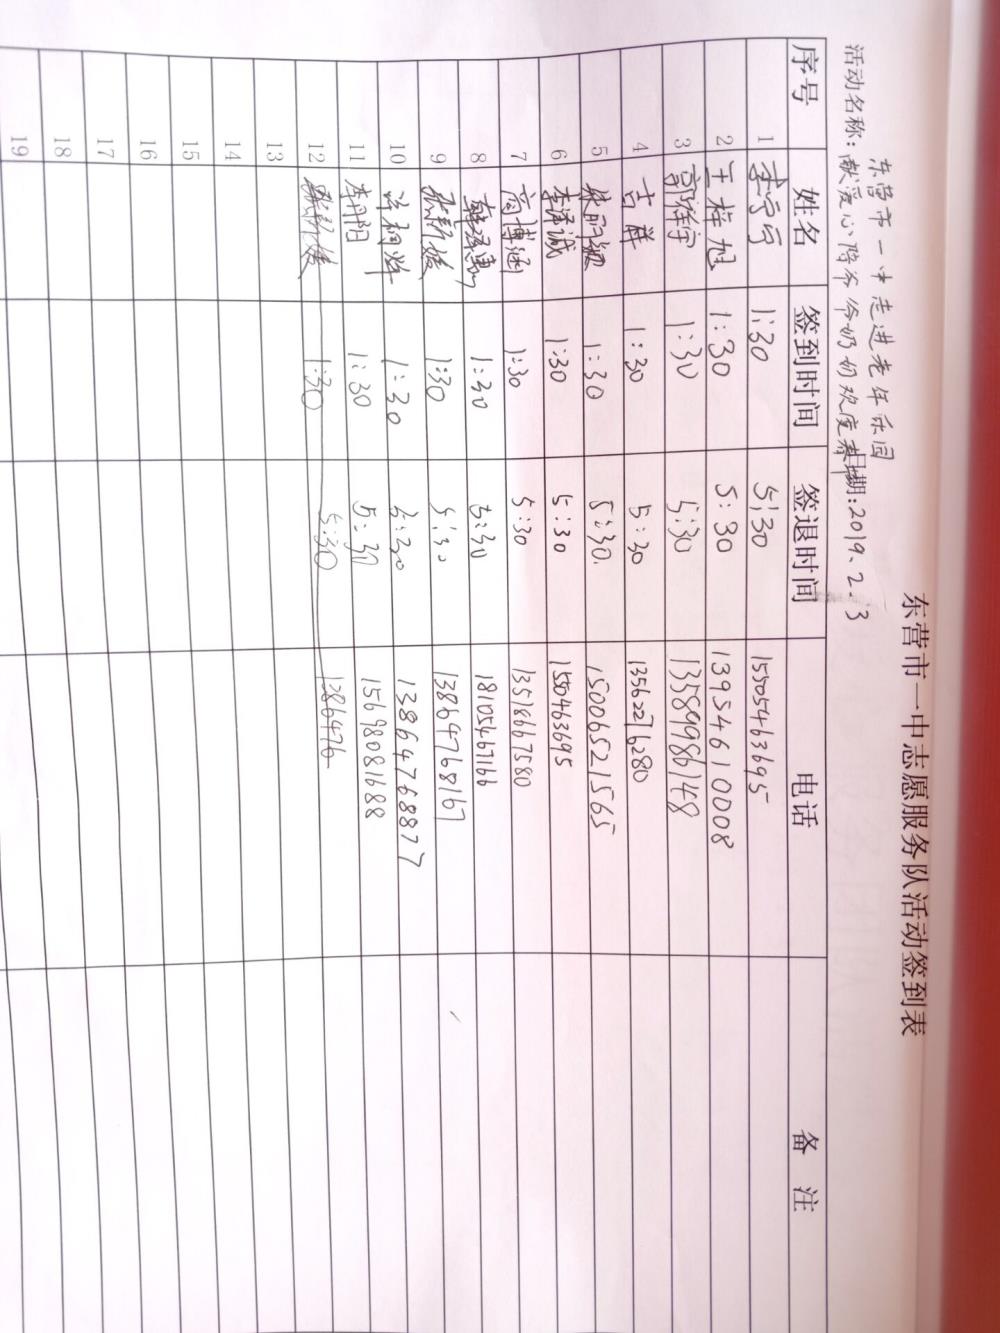 东营市一中志愿服务队活动签到表
东营市一中走进老年乐园
活动名称：献爱心陪爷爷奶奶欢度春节 日期：2019.2.3
序号 姓名 签到时间 签退时间 电话 备 注
1 1:30 5:30 15505463695
2 王梓旭 1:30 5:30 13954610008
3 1:30 5:30 13589986148
4 吉群 1:30 5:30 13562276280
5 1:30 5:30. 15006521565
6 李泽诚 1:30 5:30 1550463695
7 商博涵 1:30 5:30 13518667580
8 1:30 5:30 18105467166
9 1:30 5:30 13864768167
10 1:30 5:30 13864768877
11 李丹阳 1:30 5:30 15698081688
12 1:30 5:30 1386476
13
14
15
16
17
18
19